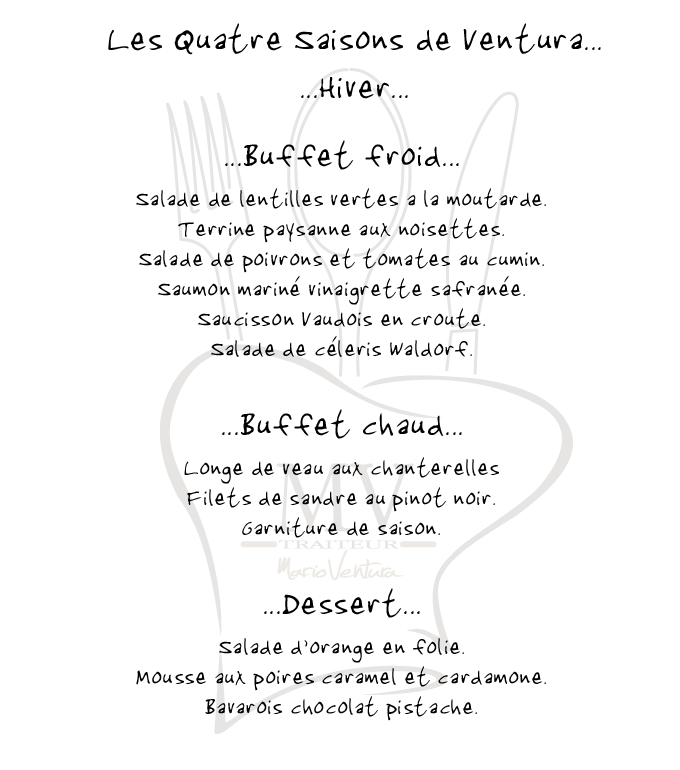 Les Quatre Saisons de Ventura...
...Hiver...
...Buffet froid...
Salade de lentilles vertes a la moutarde.
Terrine paysanne aux noisettes.
Salade de poivrons et tomates au cumin.
Saumon mariné vinaigrette safranée.
Saucisson Vaudois en croute.
Salade de céleris Waldorf.
...Buffet chaud...
Longe de veau aux chanterelles
Filets de sandre au pinot noir.
Garniture de saison.
MV
TRAITEUR
Mario Ventura
...Dessert...
Salade d'orange en folie.
Mousse aux poires caramel et cardamone.
Bavarois chocolat pistache.